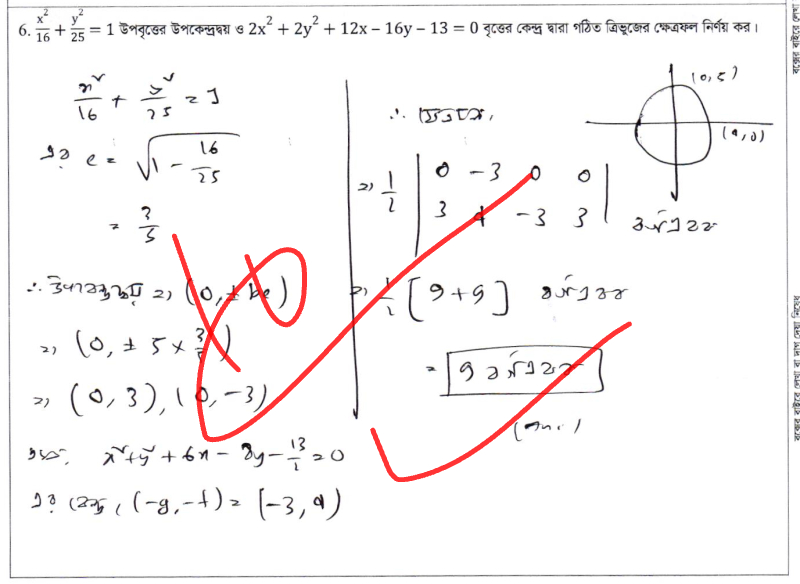 6. x²/16 + y²/25 = 1 উপবৃত্তের উপকেন্দ্রদ্বয় ও 2x² + 2y² + 12x − 16y − 13 = 0 বৃত্তের কেন্দ্র দ্বারা গঠিত ত্রিভুজের ক্ষেত্রফল নির্ণয় কর।
x²/16 + y²/25 = 1
এর e = √(1 − 16/25)
= 3/5
∴ উপকেন্দ্রদ্বয় ⇒ (0, ± be)
⇒ (0, ± 5 × 3/5)
⇒ (0, 3), (0, −3)
x² + y² + 6x − 8y − 13/2 = 0
এর কেন্দ্র, (−g, −f) = (−3, 4)
(0, 5)
∴ ক্ষেত্রফল,
⇒ 1/2 | 0 −3 0 0
3 4 −3 3 |
বর্গএকক
⇒ 1/2 [9 + 9] বর্গএকক
= 9 বর্গএকক
(Ans.)
10